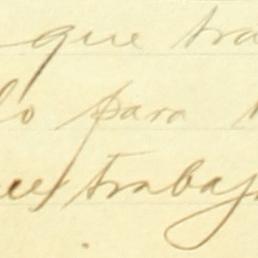 que tra
lo para
trabaj